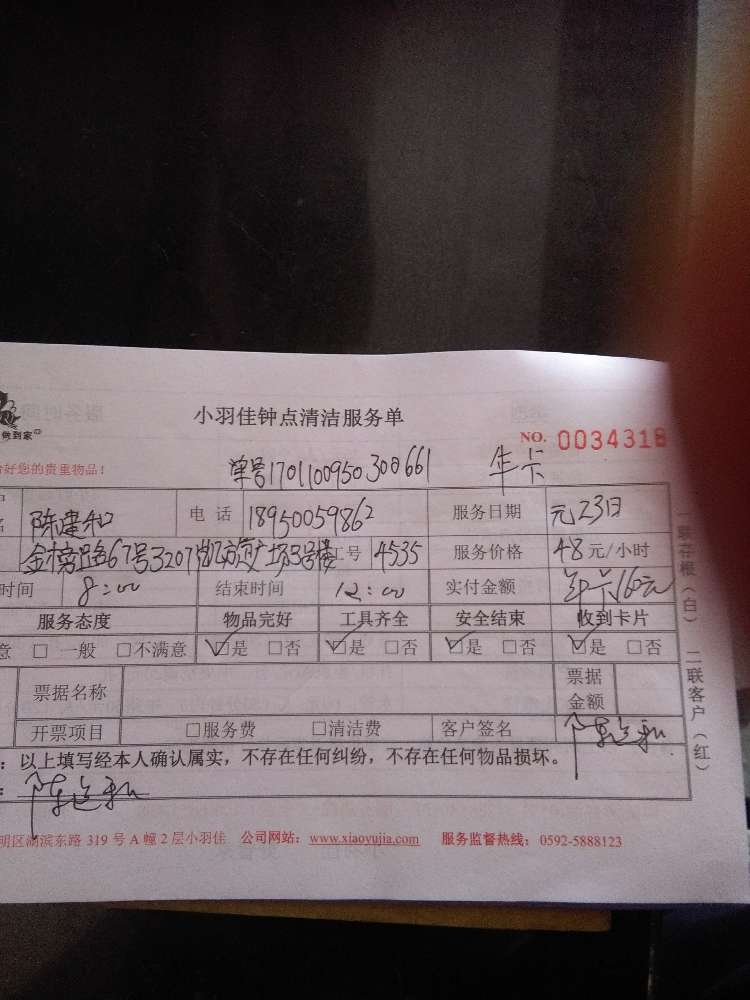 小羽佳钟点清洁服务单
做到家
NO. 0034318
好您的贵重物品!
单号1701100950300661 年卡
名 陈建和 电话 18950059862 服务日期 元23日
金榜路67号3207凯旋广场3号楼 工号 4535 服务价格 48元/小时
时间 8:00 结束时间 12:00 实付金额 年卡160元
服务态度 物品完好 工具齐全 安全结束 收到卡片
意 □ 一般 □不满意 ☑是 □否 ☑是 □否 ☑是 □否 ☑是 □否
票据名称 票据金额
开票项目 □服务费 □清洁费 客户签名 陈建和
:以上填写经本人确认属实,不存在任何纠纷,不存在任何物品损坏。
: 陈建和
明区湖滨东路 319 号 A 幢 2 层小羽佳 公司网站:www.xiaoyujia.com 服务监督热线:0592-5888123
一联存根(白) 二联客户(红)